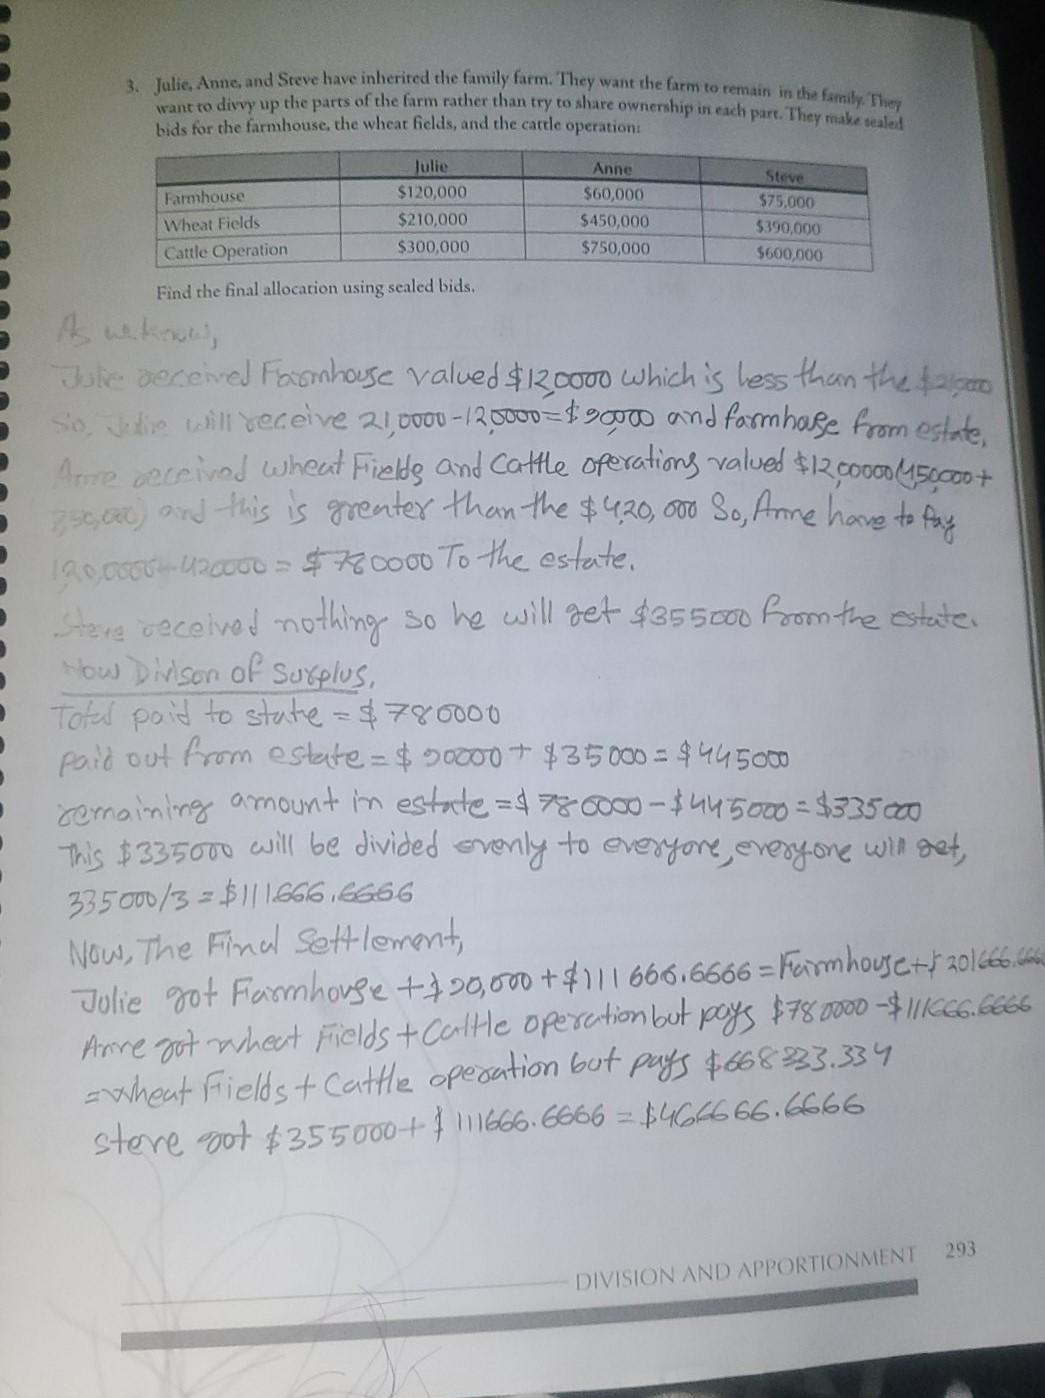 3. Julie, Anne, and Steve have inherited the family farm. They want the farm to remain in the family. They
want to divvy up the parts of the farm rather than try to share ownership in each part. They make sealed
bids for the farmhouse, the wheat fields, and the cattle operation:
Julie Anne Steve
Farmhouse $120,000 $60,000 $75,000
Wheat Fields $210,000 $450,000 $390,000
Cattle Operation $300,000 $750,000 $600,000
Find the final allocation using sealed bids.
As we know,
Julie received Farmhouse valued $120000 which is less than the
So, Julie will receive 21,0000-12,0000=$90000 and farmhouse from estate,
Anne received wheat Fields and Cattle operations valued $12,00000 (450000+
750,000) and this is greater than the $420,000 So, Anne have to pay
120,0000-420000 = $780000 To the estate.
Steve received nothing so he will get $355000 from the estate.
Now Divison of Surplus,
Total paid to state = $780000
paid out from estate = $90000 + $35000 = $445000
remaining amount in estate = $780000-$445000 = $335000
This $335000 will be divided evenly to everyone, everyone will get,
335000/3 = $111666.6666
Now, The Final Settlement,
Julie got Farmhouse + $90,000 + $111666.6666 = Farmhouse + $201666.666
Anne got wheat Fields + Cattle operation but pays $780000 - $111666.6666
= wheat Fields + Cattle operation but pays $668333.334
Steve got $355000 + $111666.6666 = $466666.6666
DIVISION AND APPORTIONMENT 293